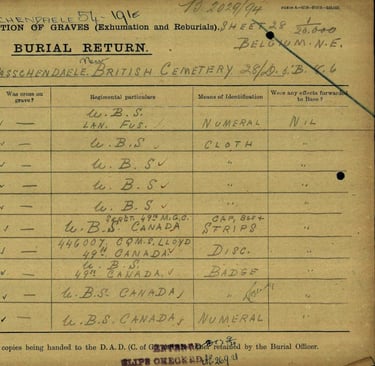 SCHENDAELE 54 - 191E
TO. 2029/94
TION OF GRAVES (Exhumation and Reburials).
SHEET 28 1/20.000
BELGIUM. N.E.
BURIAL RETURN.
New
ASSCHENDAELE BRITISH CEMETERY 28/D.6.B.8.6
Was cross on grave? Regimental particulars Means of Identification Were any effects forwarded to Base?
U.B.S.
— LAN. FUS. NUMERAL NIL
— U.B.S CLOTH "
— U.B.S " "
— U.B.S " "
— U.B.S " "
SERGT. 49TH M.G.C. CAP,
— U.B.S CANADA STRIPS "
446007, C.Q.M.S. LLOYD
— 49TH CANADA DISC. "
U.B.S.
— 49TH CANADA BADGE "
— U.B.S. CANADA " "
— U.B.S. CANADA NUMERAL "
copies being handed to the D.A.D. (C. of retained by the Burial Officer.
ENTERED
SLIPS CHECKED